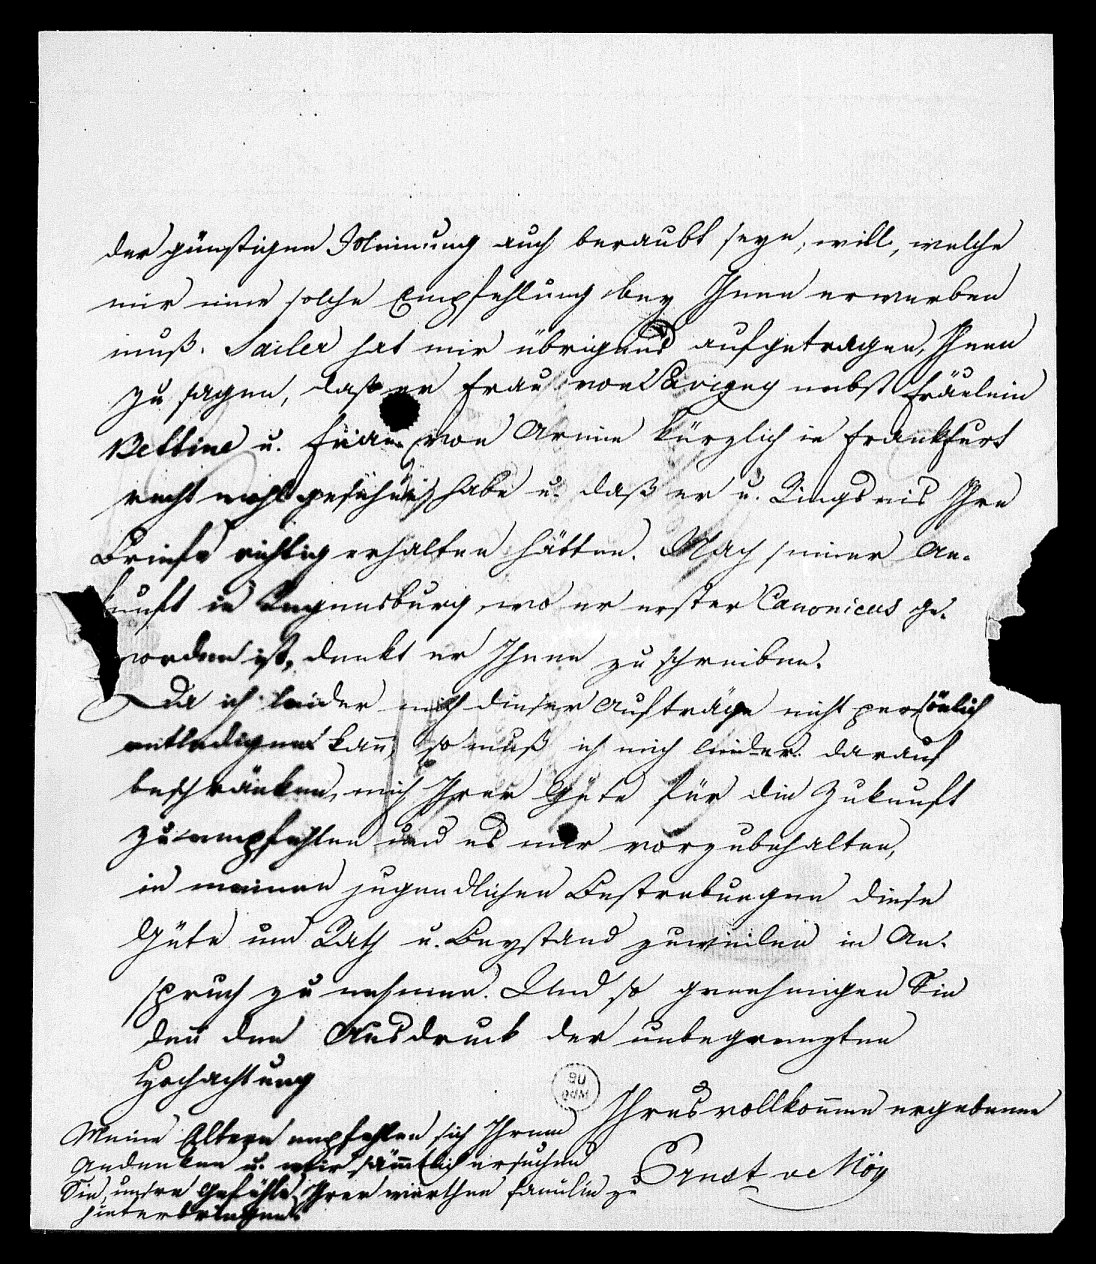 der günstigen Meinung auch beraubt seyn will, welche
mir eine solche Empfehlung bey Ihnen erwerben
muß. Sailer hat mir übrigens aufgetragen, Ihnen
zu sagen, daß er Frau von Savigny nebst Fräulein
Bettine u. Frau von Arnim kürzlich in Frankfurt
recht wohl habe u. daß er u. Ringseis Ihre
Briefe richtig erhalten hätten. Nach seiner An-
kunft in Regensburg, wo er erster Canonicus ge-
worden ist, denkt er Ihnen zu schreiben.
Da ich leider mich dieser Aufträge nicht persönlich
entledigen kann, so muß ich mich leider darauf
beschränken, mich Ihrer Güte für die Zukunft
zu empfehlen und es mir vorzubehalten,
in meinen jugendlichen Bestrebungen diese
Güte um Rath u. Beystand zuweilen in An-
spruch zu nehmen. Und so genehmigen Sie
denn den Ausdruck der unbegrenzten
Hochachtung
Ihres vollkommen ergebenen
Ernst v Moy
Meine Eltern empfehlen sich Ihrem
Andenken u. wir sämmtlich ersuchen
Sie, unsre Gefühle Ihrer werthen Familie zu
hinterbringen.